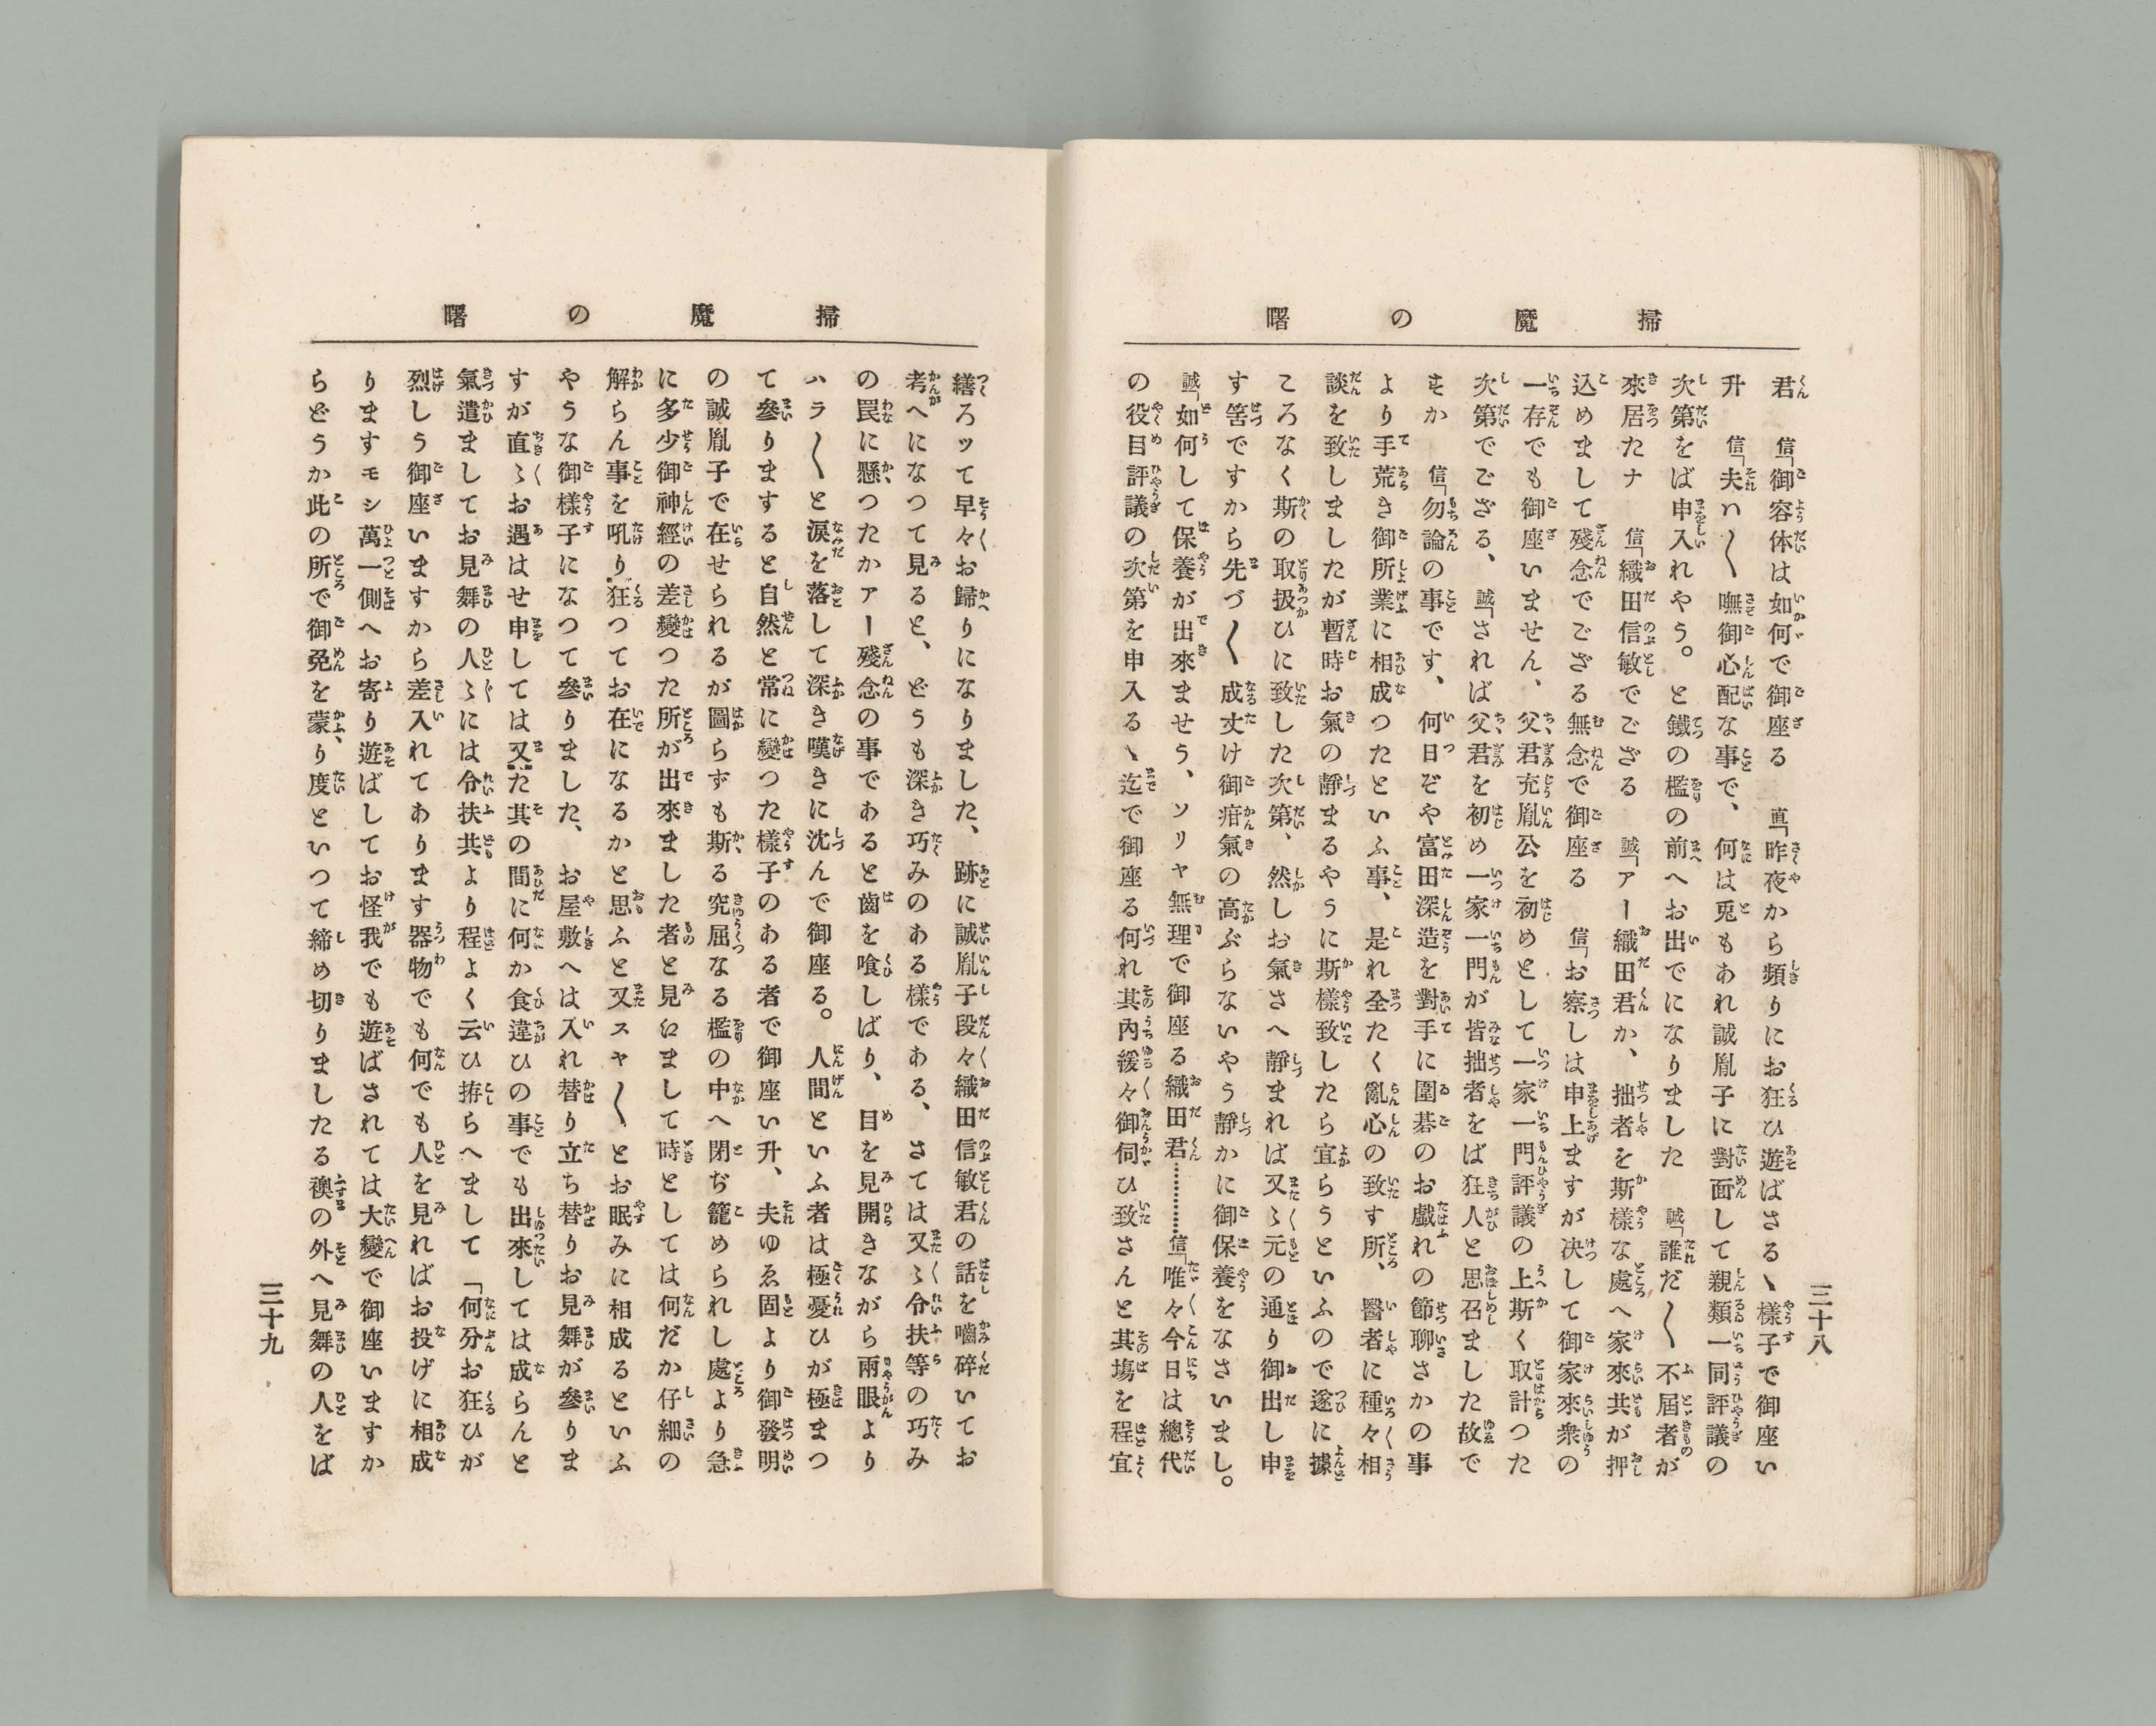 掃魔の曙
君　信「御容体は如何で御座る　直「昨夜から頻りにお狂ひ遊ばさるゝ樣子で御座い
升　信「夫ハ〳〵嘸御心配な事で、何は兎もあれ誠胤子に對面して親類一同評議の
次第をば申入れやう。と鐵の檻の前へお出でになりました　誠「誰だ〳〵不屆者が
來居たナ　信「織田信敏でござる　誠「アー織田君か、拙者を斯樣な處へ家來共が押
込めまして殘念でござる無念で御座る　信「お察しは申上ますが决して御家來衆の
一存でも御座いません、父君充胤公を初めとして一家一門評議の上斯く取計つた
次第でござる、　誠「されば父君を初め一家一門が皆拙者をば狂人と思召ました故で
すか　信「勿論の事です、何日ぞや富田深造を對手に圍碁のお戲れの節聊さかの事
より手荒き御所業に相成つたといふ事、是れ全たく亂心の致す所、醫者に種々相
談を致しましたが暫時お氣の靜まるやうに斯樣致したら宜らうといふので遂に據
ころなく斯の取扱ひに致した次第、然しお氣さへ靜まれば又〻元の通り御出し申
す筈ですから先づ〳〵成丈け御疳氣の高ぶらないやう靜かに御保養をなさいまし。
誠「如何して保養が出來ませう、ソリヤ無理で御座る織田君…………信「唯々今日は總代
の役目評議の次第を申入るゝ迄で御座る何れ其內緩々御伺ひ致さんと其塲を程宜
三十八
掃魔の曙
繕ろッて早々お歸りになりました、跡に誠胤子段々織田信敏君の話を嚙碎いてお
考へになつて見ると、どうも深き巧みのある樣である、さては又〻令扶等の巧み
の罠に懸つたかアー殘念の事であると齒を喰しばり、目を見開きながら兩眼より
ハラ〳〵と淚を落して深き嘆きに沈んで御座る。人間といふ者は極憂ひが極まつ
て參りますると自然と常に變つた樣子のある者で御座い升、夫ゆゑ固より御發明
の誠胤子で在せられるが圖らずも斯る究屈なる檻の中へ閉ぢ籠められし處より急
に多少御神經の差變つた所が出來ました者と見江まして時としては何だか仔細の
解らん事を吼り狂つてお在になるかと思ふと又スヤ〳〵とお眠みに相成るといふ
やうな御樣子になつて參りました、お屋敷へは入れ替り立ち替りお見舞が參りま
すが直〻お遇はせ申しては又た其の間に何か食違ひの事でも出來しては成らんと
氣遣ましてお見舞の人〻には令扶共より程よく云ひ拵らへまして「何分お狂ひが
烈しう御座いますから差入れてあります器物でも何でも人を見ればお投げに相成
りますモシ萬一側へお寄り遊ばしてお怪我でも遊ばされては大變で御座いますか
らどうか此の所で御免を蒙り度といつて締め切りましたる襖の外へ見舞の人をば
三十九